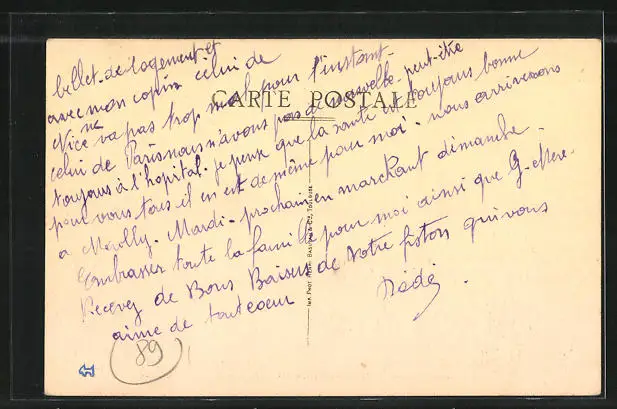 billet de logement et
avec mon copin celui de
Nice ne va pas trop mal pour l'instant.
celui de Paris nous n'avons pas de nouvelle peut-être
toujours à l'hopital. Je pense que la santé est toujours bonne
pour vous tous il en est de même pour moi. nous arriverons
a Mardi. prochain en marchant dimanche.
Embrasser toute la famille pour moi ainsi que G-Mère.
Recevez de Bons Baisers de votre fiston qui vous
aime de tout coeur
Dédé.
CARTE POSTALE
89